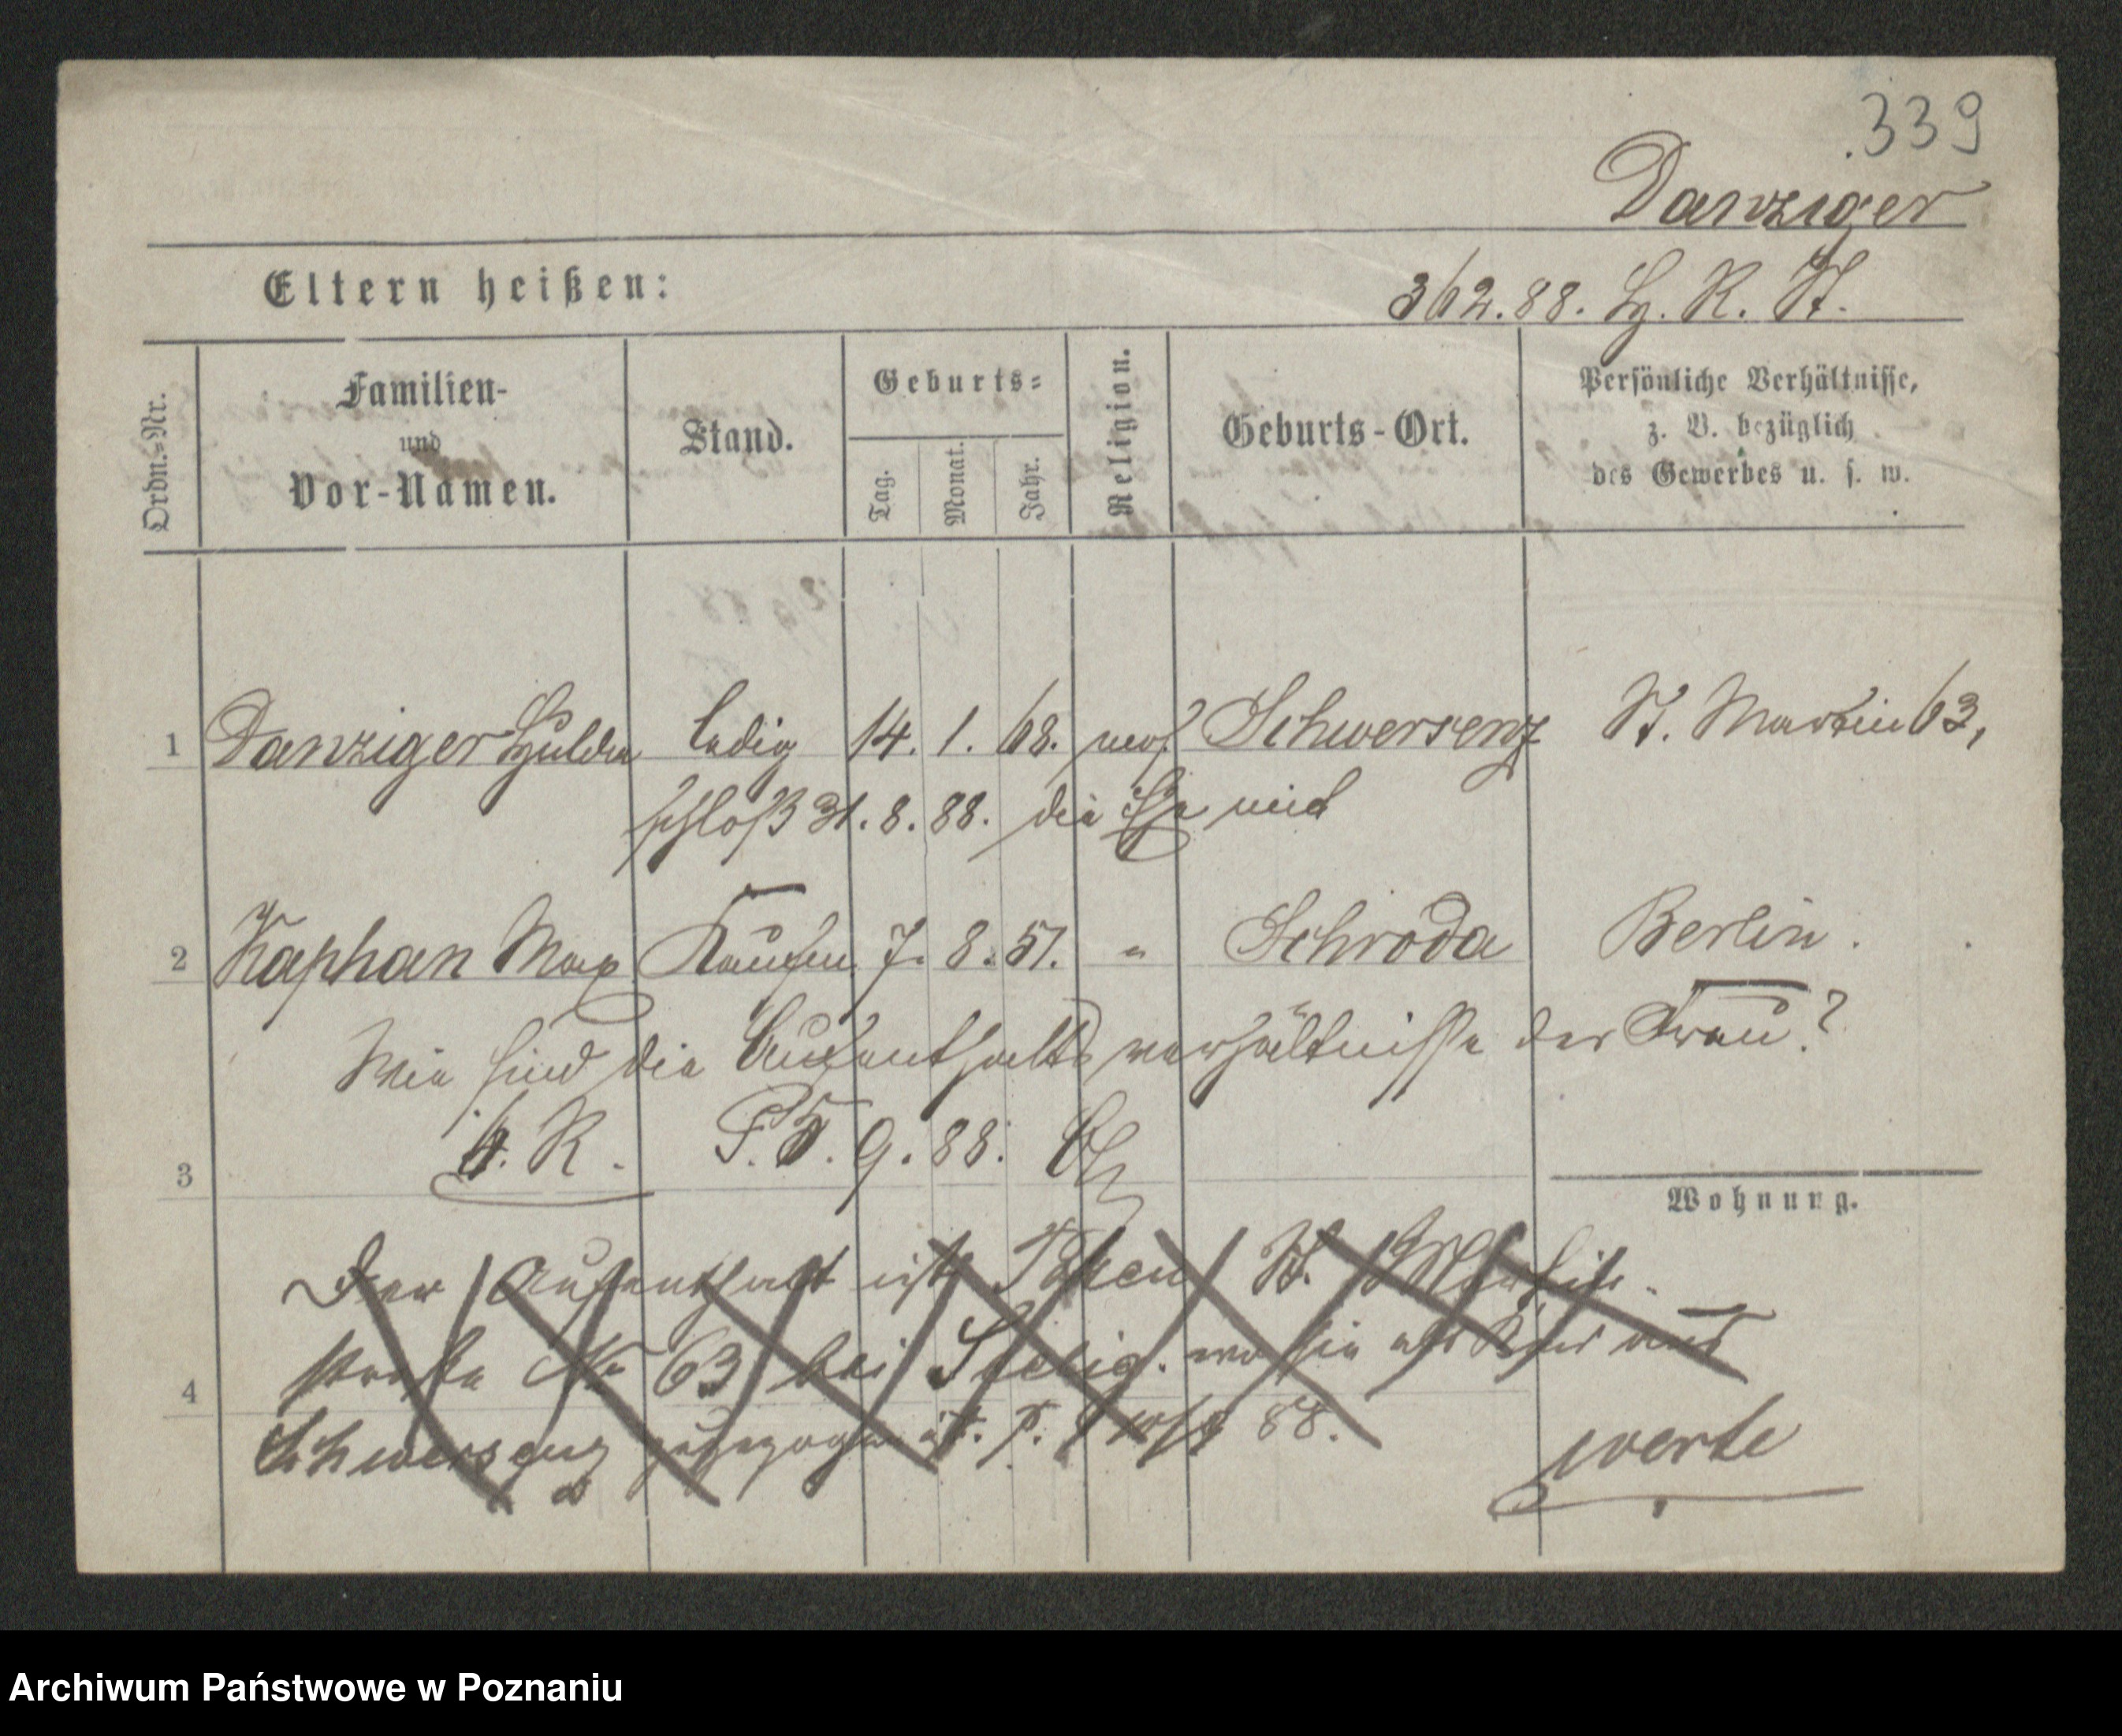 339
Danziger
Eltern heißen: 362.88. Hz. R. St.
Ordn.-Nr. Familien- und Vor-Namen. Stand. Geburts- Tag. Monat. Jahr. Religion. Geburts-Ort. Persönliche Verhältnisse, z. B. bezüglich des Gewerbes u. s. w.
1 Danziger Hulda ledig 14. 1. 68. mos. Schwersenz St. Martin 63,
schloß 31. 8. 88. die Ehe mit
2 Kaphan Max Kaufm. 7. 8. 51. " Schroda Berlin.
Wie sind die Aufenthaltsverhältnisse der Frau?
R. P. 5. 9. 88.
3
Wohnung.
Der Aufenthalt ist Posen St. Martin-
straße No 63 bei wo sie als aus
4
Schwersenz zugezogen ist. P. 88.